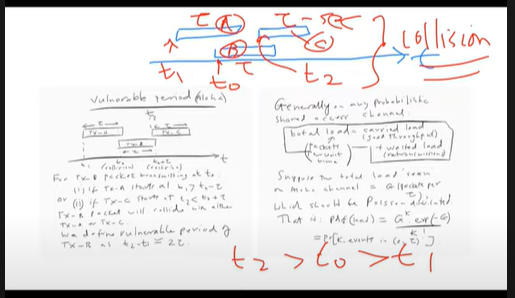 τ A τ - sec
B C
collision
t1 t0 τ t2
Vulnerable period (Aloha)
τ t2 τ
TX-A TX-C
TX-B
t
For TX-B packet transmitting at t0
(i) if TX-A starts at t1 > t0-τ
or (ii) if TX-C starts at t2 < t0+τ
TX-B packet will collide with either
TX-A or TX-C.
We define vulnerable period of
TX-B as t2-t1 = 2τ
Generally on any probabilistic
shared access channel.
total load = carried load
(good throughput)
packets + wasted load
per unit (retransmissions)
time
Suppose the total load seen
on Aloha channel = G (packets per
τ)
which should be Poisson distributed
That is P{load} = G^k exp(-G)
k!
= Pr[K events in (0, τ)]
t2 > t0 > t1